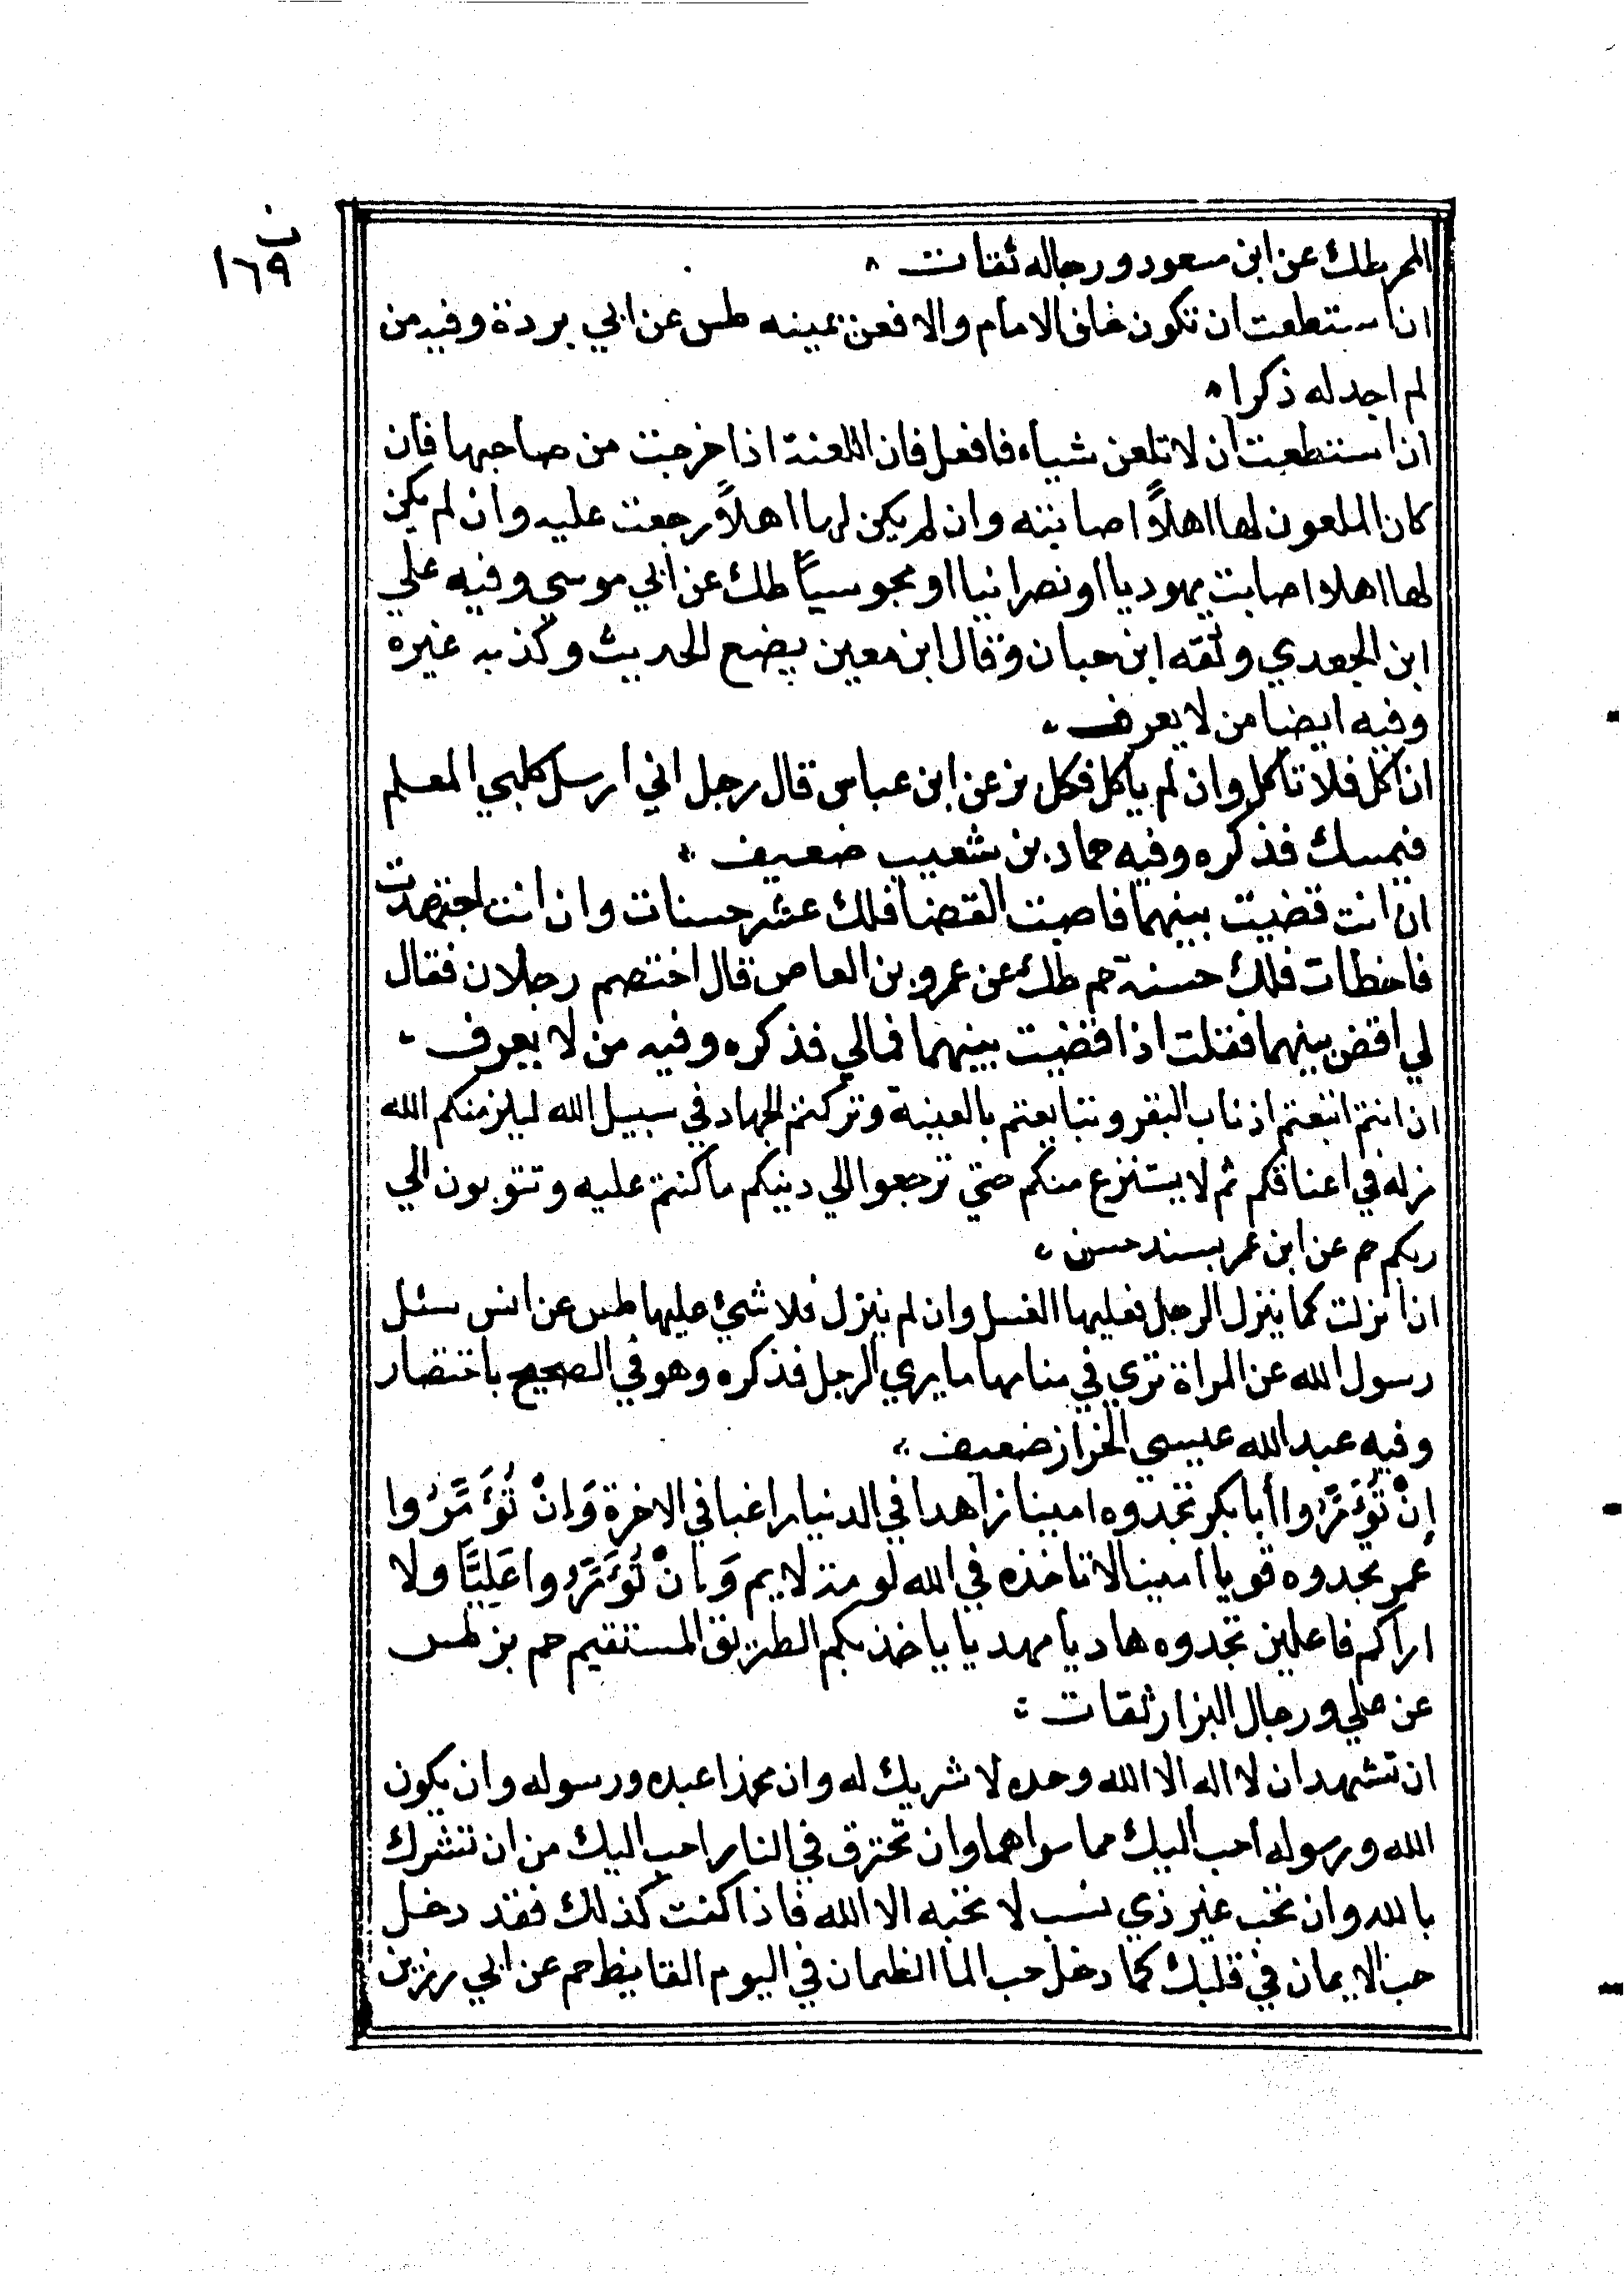 ن
١٦٩
المر طك عن ابن مسعود ورجاله ثقات
ان استطعت ان تكون خلف الامام والا فعن يمينه طس عن ابي بردة وفيه من
لم اجد له ذكرا
ان استطعت ان لا تلعن شياء فافعل فان اللعنة اذا خرجت من صاحبها فان
كان الملعون لها اهلاً اصابته وان لم يكن لها اهلاً رجعت عليه وان لم يكن
لها اهلا اصابت يهوديا او نصرانيا او مجوسياً طك عن ابي موسي وفيه علي
ابن الجعدي وثقه ابن حبان وقال ابن معين يضع الحديث وكذبه غيره
وفيه ايضا من لا يعرف
ان اكل فلا تاكل وان لم ياكل فكل بز عن ابن عباس قال رجل اني ارسل كلبي المعلم
فيمسك فذكره وفيه حماد بن شعيب ضعيف
ان انت قضيت بينهما فاصبت القضا فلك عشر حسنات وان انت اجتهدت
فاخطات فلك حسنة حم طك عن عمرو بن العاص قال اختصم رجلان فقال
لي اقض بينهما فقلت اذا قضيت بينهما فمالي فذكره وفيه من لا يعرف
ان انتم اتبعتم اذناب البقر وتبايعتم بالعينة وتركتم الجهاد في سبيل الله ليلزمنكم الله
مزله في اعناقكم ثم لا يستنزع منكم حتي ترجعوا الي دينكم ما كنتم عليه وتتوبون الي
ربكم حم عن ابن عمر بسند حسن
ان انزلت كما ينزل الرجل فعليها الغسل وان لم ينزل فلا شئ عليها طس عن انس سئل
رسول الله عن المراة تري في منامها ما يري الرجل فذكره وهو في الصحيح باختصار
وفيه عبد الله عيسي الخزاز ضعيف
إِنْ تُؤَمِّرُوا أبا بكر تجدوه امينا زاهدا في الدنيا راغبا في الاخرة وَاِنْ تُؤَمِّرُوا
عمر تجدوه قويا امينا لا تاخذه في الله لومة لايم وَاِنْ تُؤَمِّرُوا عَلِيًّا ولا
اراكم فاعلين تجدوه هاديا مهديا ياخذ بكم الطريق المستقيم حم بز طس
عن علي ورجال البزار ثقات
ان تشهد ان لا اله الا الله وحده لا شريك له وان محمدا عبده ورسوله وان يكون
الله ورسوله احب اليك مما سواهما وان تحترق في النار احب اليك من ان تشرك
بالله وان تحب غير ذي نسب لا تحبه الا الله فاذا كنت كذلك فقد دخل
حب الايمان في قلبك كما دخل حب الما الظمان في اليوم القايظ حم عن ابي رزين